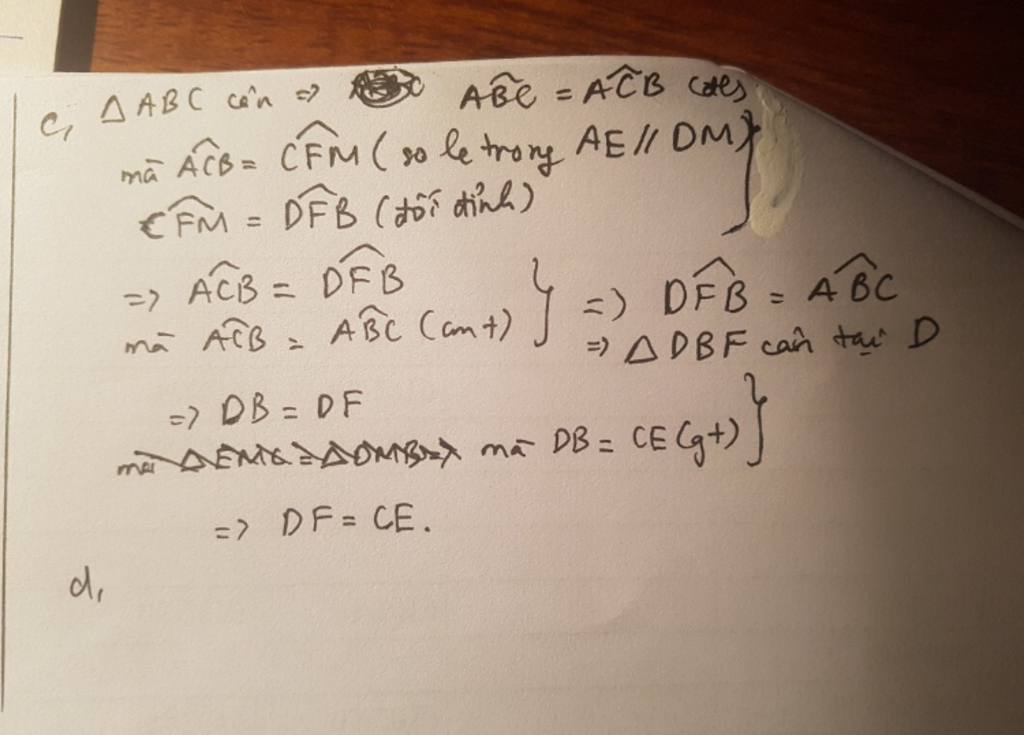 c, △ABC cân => ABC = ACB
mà ACB = CFM (so le trong AE // DM)
CFM = DFB (đối đỉnh)
=> ACB = DFB
mà ACB = ABC (cmt)
=> DFB = ABC
=> △DBF cân tại D
=> DB = DF
mà △EMC = △DMB => mà DB = CE (gt)
=> DF = CE.
d,